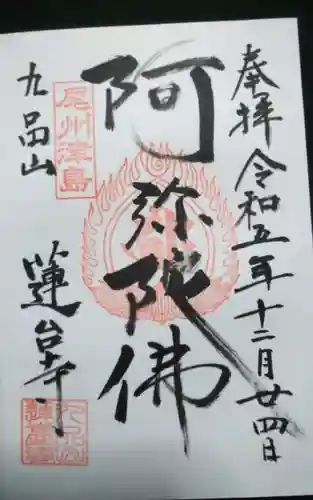 奉拝 令和五年十二月廿四日
阿弥陀佛
尾州津島
九品山 蓮台寺